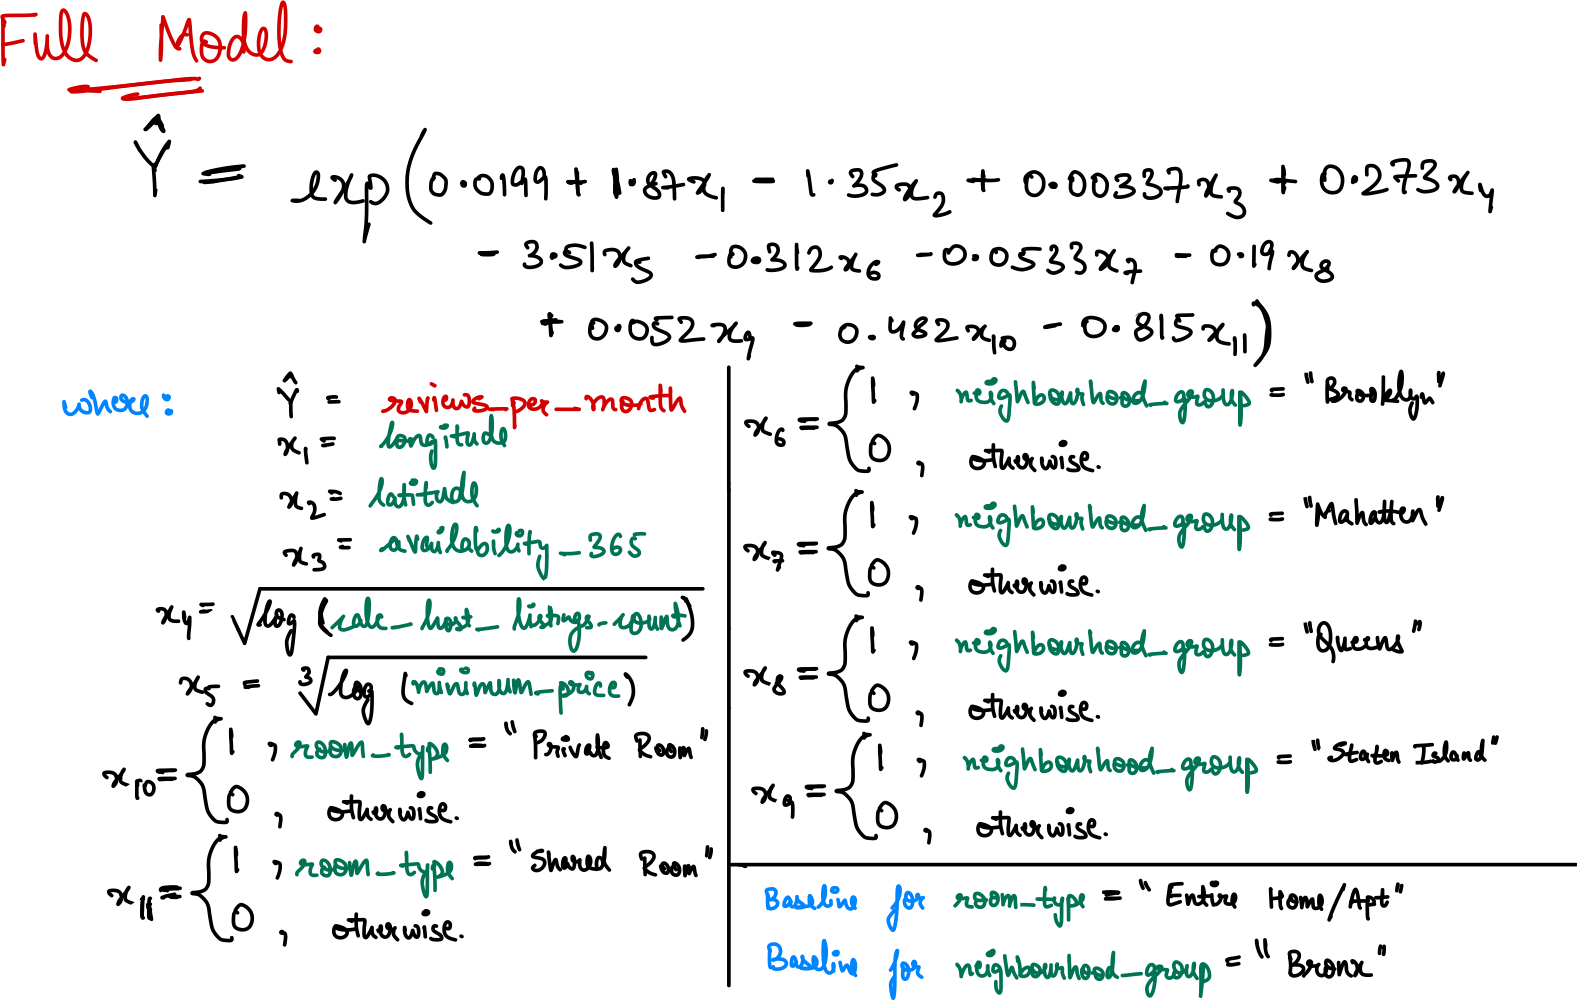 Full Model:
Ŷ = exp(0.0199 + 1.87x₁ - 1.35x₂ + 0.00337x₃ + 0.273x₄
- 3.51x₅ - 0.312x₆ - 0.0533x₇ - 0.19x₈
+ 0.052x₉ - 0.482x₁₀ - 0.815x₁₁)
where: Ŷ = reviews_per_month
x₁ = longitude
x₂ = latitude
x₃ = availability_365
x₄ = √log (calc_host_listings-count)
x₅ = ∛log (minimum_price)
x₁₀ = { 1 , room_type = "Private Room"
0 , otherwise.
x₁₁ = { 1 , room_type = "Shared Room"
0 , otherwise.
x₆ = { 1 , neighbourhood_group = "Brooklyn"
0 , otherwise.
x₇ = { 1 , neighbourhood_group = "Mahatten"
0 , otherwise.
x₈ = { 1 , neighbourhood_group = "Queens"
0 , otherwise.
x₉ = { 1 , neighbourhood_group = "Staten Island"
0 , otherwise.
Baseline for room_type = "Entire Home/Apt"
Baseline for neighbourhood_group = "Bronx"